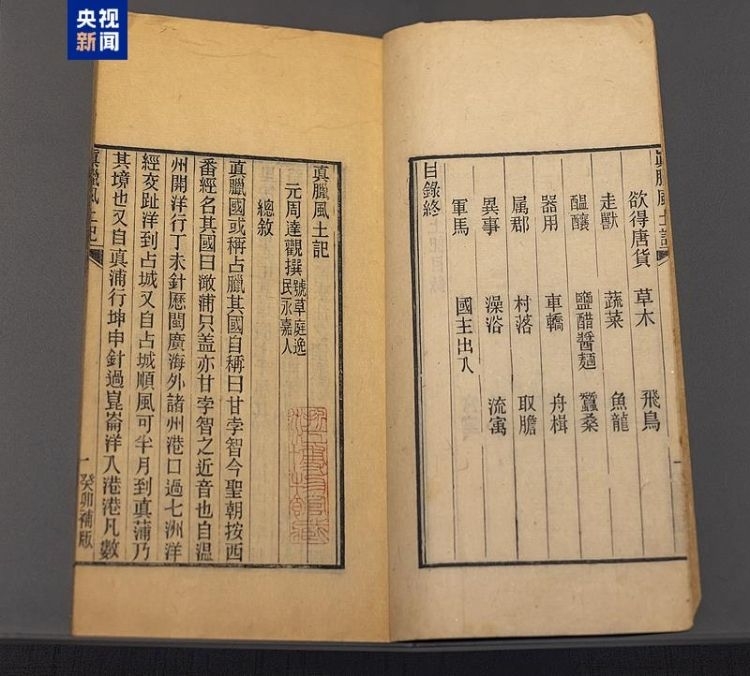 央视
新闻
眞臘風土記
一
欲得唐貨 草木 飛鳥
走獸 蔬菜 魚龍
醖釀 鹽醋醬麵 蠶桑
器用 車轎 舟楫
属郡 村落 取膽
異事 澡浴 流寓
軍馬 國主出入
目錄終
眞臘風土記
元周達觀撰 號草庭逸民永嘉人
總敘
眞臘國或稱占臘其國自稱曰甘孛智今聖朝按西
番經名其國曰澉浦只盖亦甘孛智之近音也自温
州開洋行丁未針歷閩廣海外諸州港口過七洲洋
經交趾洋到占城又自占城順風可半月到眞蒲乃
其境也又自眞浦行坤申針過崑崙洋入港港凡數
眞臘風土記
一 癸卯補版